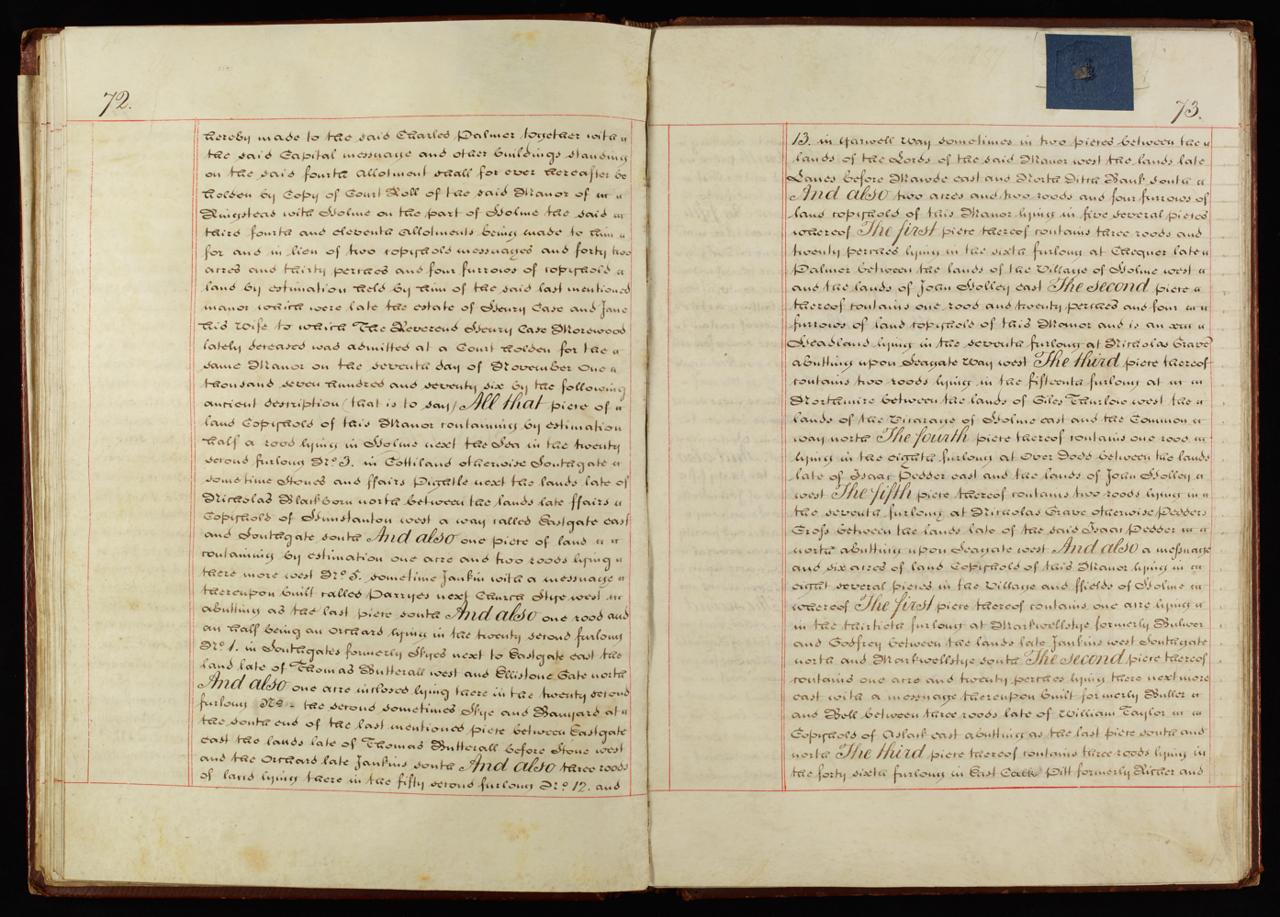 72.
hereby made to the said Charles Palmer together with
the said Capital messuage and other buildings standing
on the said fourth Allotment shall for ever hereafter be
holden by Copy of Court Roll of the said Manor of
Ringstead with Holme on the part of Holme the said
third fourth and eleventh Allotments being made to him
for and in lieu of two copyhold messuages and forty two
acres and thirty perches and four furrows of copyhold
land by estimation held by him of the said last mentioned
manor which were late the estate of Henry Case and Jane
his wife to which The Reverend Henry Case Morewood
lately deceased was admitted at a Court holden for the
same Manor on the seventh day of November One
thousand seven hundred and seventy six by the following
ancient description (that is to say) All that piece of
land Copyhold of this Manor containing by estimation
half a rood lying in Holme next the Sea in the twenty
second furlong No. 3. in Cottiland otherwise Southgate
sometime Stones and ffairs Pightle next the lands late of
Nicholas Blackborn north between the lands late ffairs
Copyhold of Hunstanton west a way called Eastgate east
and Southgate south And also one piece of land
containing by estimation one acre and two roods lying
there more west No. 5. sometime Jankin with a messuage
thereupon built called Parryes next Church Stye west
abutting as the last piece south And also one rood and
an half being an Orchard lying in the twenty second furlong
No. 1. in Southgates formerly Skyes next to Eastgate east the
land late of Thomas Butterall west and Ellistone Gate north
And also one acre inclosed lying there in the twenty second
furlong No. the second sometimes Skye and Banyard at
the south end of the last mentioned piece between Eastgate
east the lands late of Thomas Butterall before Stone west
and the Orchard late Jankins south And also three roods
of land lying there in the fifty second furlong No. 12. and
73.
13. in Yarwell Way sometimes in two pieces between the
lands of the Lords of the said Manor west the lands late
Lanes before Mawde east and North Ditch Bank south
And also two acres and two roods and four furrows of
land copyhold of this Manor lying in five several pieces
whereof The first piece thereof contains three roods and
twenty perches lying in the sixth furlong at Chequer late
Palmer between the lands of the Village of Holme west
and the lands of John Holley east The second piece
thereof contains one rood and twenty perches and four
furrows of land copyhold of this Manor and is an
Headland lying in the seventh furlong at Nicholas Grave
abutting upon Seagate Way west The third piece thereof
contains two roods lying in the fifteenth furlong at
Northmire between the lands of Giles Thurlow west the
lands of the Vicarage of Holme east and the Common
way north The fourth piece thereof contains one rood
lying in the eighth furlong at Over Dodd between the lands
late of Isaac Pedder east and the lands of John Holley
west The fifth piece thereof contains two roods lying in
the seventh furlong at Nicholas Grave otherwise Pedders
Cross between the lands late of the said Isaac Pedder
north abutting upon Seagate west And also a messuage
and six acres of land Copyhold of this Manor lying in
eight several pieces in the Village and ffields of Holme
whereof The first piece thereof contains one acre lying
in the thirtieth furlong at Markwellstye formerly Bulwer
and Godfrey between the lands late Jankins west Southgate
north and Markwellstye south The second piece thereof
contains one acre and twenty perches lying there next more
east with a messuage thereupon built formerly Buller
and Bell between three roods late of William Taylor
Copyhold of Aslack east abutting as the last piece south and
north The third piece thereof contains three roods lying in
the forty sixth furlong in East Pitt formerly Richer and